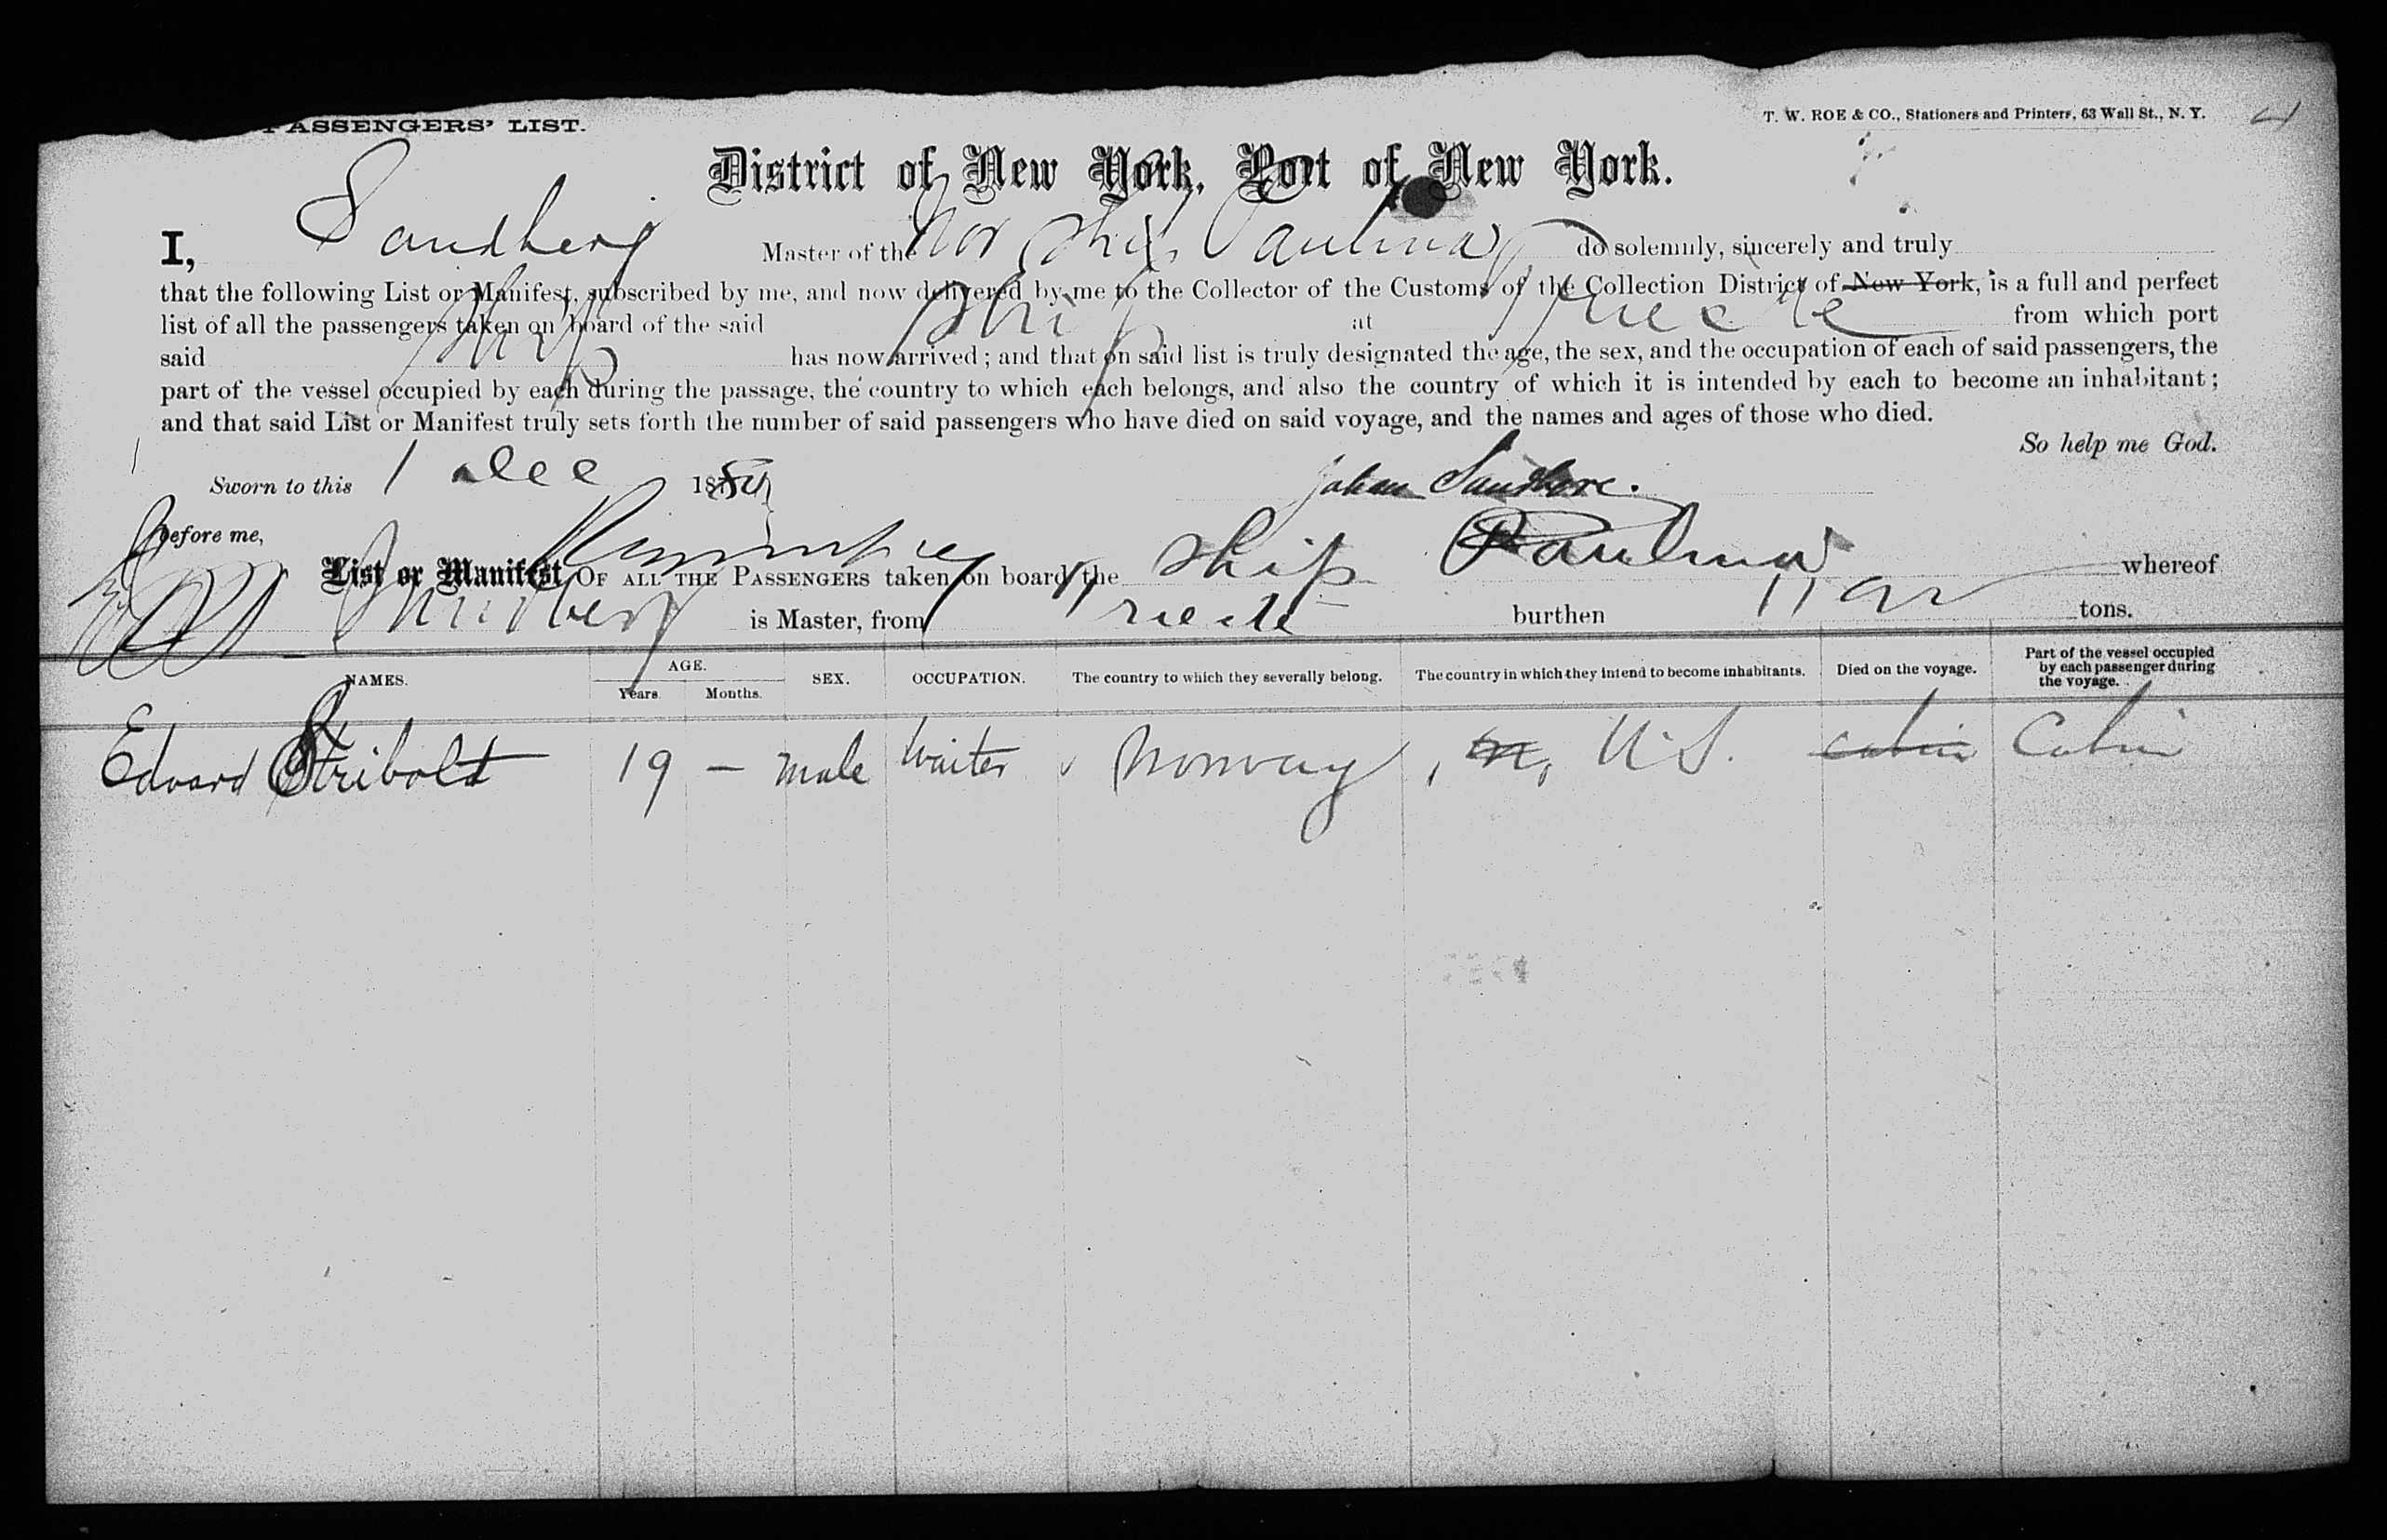 PASSENGERS' LIST.
T. W. ROE & CO., Stationers and Printers, 63 Wall St., N. Y.
District of New York, Port of New York.
I, Sandberg Master of the Nor Ship Paulina do solemnly, sincerely and truly
that the following List or Manifest, subscribed by me, and now delivered by me to the Collector of the Customs of the Collection District of New York, is a full and perfect
list of all the passengers taken on board of the said Ship at Trieste from which port
said Ship has now arrived; and that on said list is truly designated the age, the sex, and the occupation of each of said passengers, the
part of the vessel occupied by each during the passage, the country to which each belongs, and also the country of which it is intended by each to become an inhabitant;
and that said List or Manifest truly sets forth the number of said passengers who have died on said voyage, and the names and ages of those who died.
So help me God.
Sworn to this 1 Dec 18
Johan
before me,
List or Manifest OF ALL THE PASSENGERS taken on board the Ship Paulina whereof
Sandberg is Master, from Trieste burthen tons.
NAMES. AGE. Years. Months. SEX. OCCUPATION. The country to which they severally belong. The country in which they intend to become inhabitants. Died on the voyage. Part of the vessel occupied by each passenger during the voyage.
Edvard Stribolt 19 — male Waiter Norway U.S. cabin Cabin